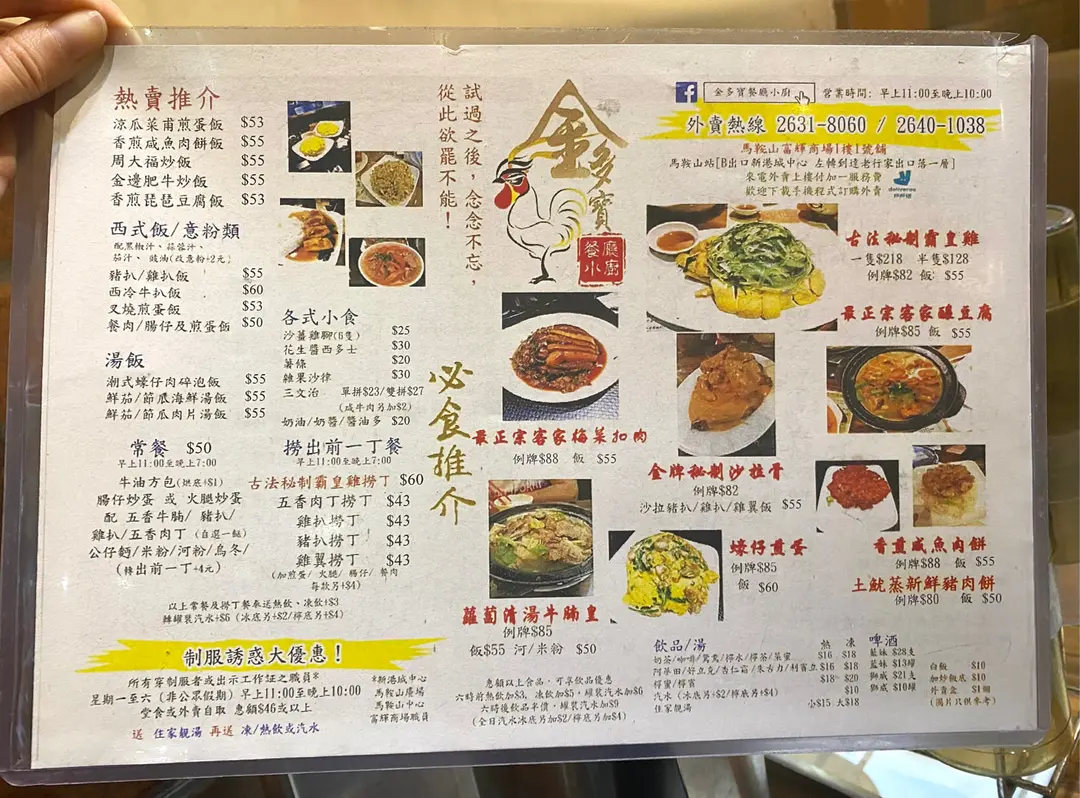 熱賣推介
涼瓜菜甫煎蛋飯 $53
香煎咸魚肉餅飯 $55
周大福炒飯 $55
金邊肥牛炒飯 $55
香煎琵琶豆腐飯 $53
西式飯/意粉類
配黑椒汁、蒜蓉汁、
茄汁、豉油(改意粉+2元)
豬扒/雞扒飯 $55
西冷牛扒飯 $60
叉燒煎蛋飯 $53
餐肉/腸仔及煎蛋飯 $50
湯飯
潮式蠔仔肉碎泡飯 $55
鮮茄/節瓜海鮮湯飯 $55
鮮茄/節瓜肉片湯飯 $55
常餐 $50
早上11:00至晚上7:00
牛油方包(烘底+$1)
腸仔炒蛋 或 火腿炒蛋
配 五香牛腩/豬扒/
雞扒/五香肉丁(自選一餸)
公仔麵/米粉/河粉/烏冬/
(轉出前一丁+4元)
各式小食
沙薑雞腳(6隻) $25
花生醬西多士 $30
薯條 $20
雜果沙律 $30
三文治 單拼$23/雙拼$27
(咸牛肉另加$2)
奶油/奶醬/醬油多 $20
撈出前一丁餐
早上11:00至晚上7:00
古法秘制霸皇雞撈丁 $60
五香肉丁撈丁 $43
雞扒撈丁 $43
豬扒撈丁 $43
雞翼撈丁 $43
(加煎蛋/火腿/腸仔/餐肉
每款另+$4)
以上常餐及撈丁餐奉送熱飲、凍飲+$3
轉罐裝汽水+$6(冰底另+$2/檸底另+$4)
制服誘惑大優惠!
所有穿制服者或出示工作証之職員*
星期一至六(非公眾假期)早上11:00至晚上10:00
堂食或外賣自取 惠顧$46或以上
送 住家靚湯 再送 凍/熱飲或汽水
*新港城中心
馬鞍山廣場
馬鞍山中心
富輝商場職員
試過之後,念念不忘,
從此欲罷不能!
金多寶
餐廳小廚
必食推介
金多寶餐廳小廚
營業時間: 早上11:00至晚上10:00
外賣熱線 2631-8060 / 2640-1038
馬鞍山富輝商場1樓1號舖
馬鞍山站[B出口新港城中心 左轉到達老行家出口落一層]
來電外賣上樓付加一服務費
歡迎下載手機程式訂購外賣
deliveroo
戶戶送
古法秘制霸皇雞
一隻$218 半隻$128
例牌$82 飯 $55
最正宗客家釀豆腐
例牌$85 飯 $55
最正宗客家梅菜扣肉
例牌$88 飯 $55
金牌秘制沙拉骨
例牌$82
沙拉豬扒/雞扒/雞翼飯 $55
蘿蔔清湯牛腩皇
例牌$85
飯$55 河/米粉 $50
蠔仔煎蛋
例牌$85
飯 $60
香煎咸魚肉餅
例牌$88 飯 $55
土魷蒸新鮮豬肉餅
例牌$80 飯 $50
惠顧以上食品,可享飲品優惠
六時前熱飲加$3、凍飲加$5、罐裝汽水加$6
六時後飲品半價、罐裝汽水加$9
(全日汽水冰底另加$2/檸底另加$4)
飲品/湯 熱 凍
奶茶/咖啡/鴛鴦/檸水/檸茶/菜蜜 $16 $18
阿華田/好立克/杏仁霜/朱古力/利賓立 $16 $18
檸蜜/檸賓 $18 $20
汽水(冰底另+$2/檸底另+$4) $10
住家靚湯 小$15 大$18
啤酒
藍妹 $28支
藍妹 $13罐
獅威 $21支
獅威 $10罐
白飯 $10
加炒飯底 $10
外賣盒 $1個
(圖片只供參考)